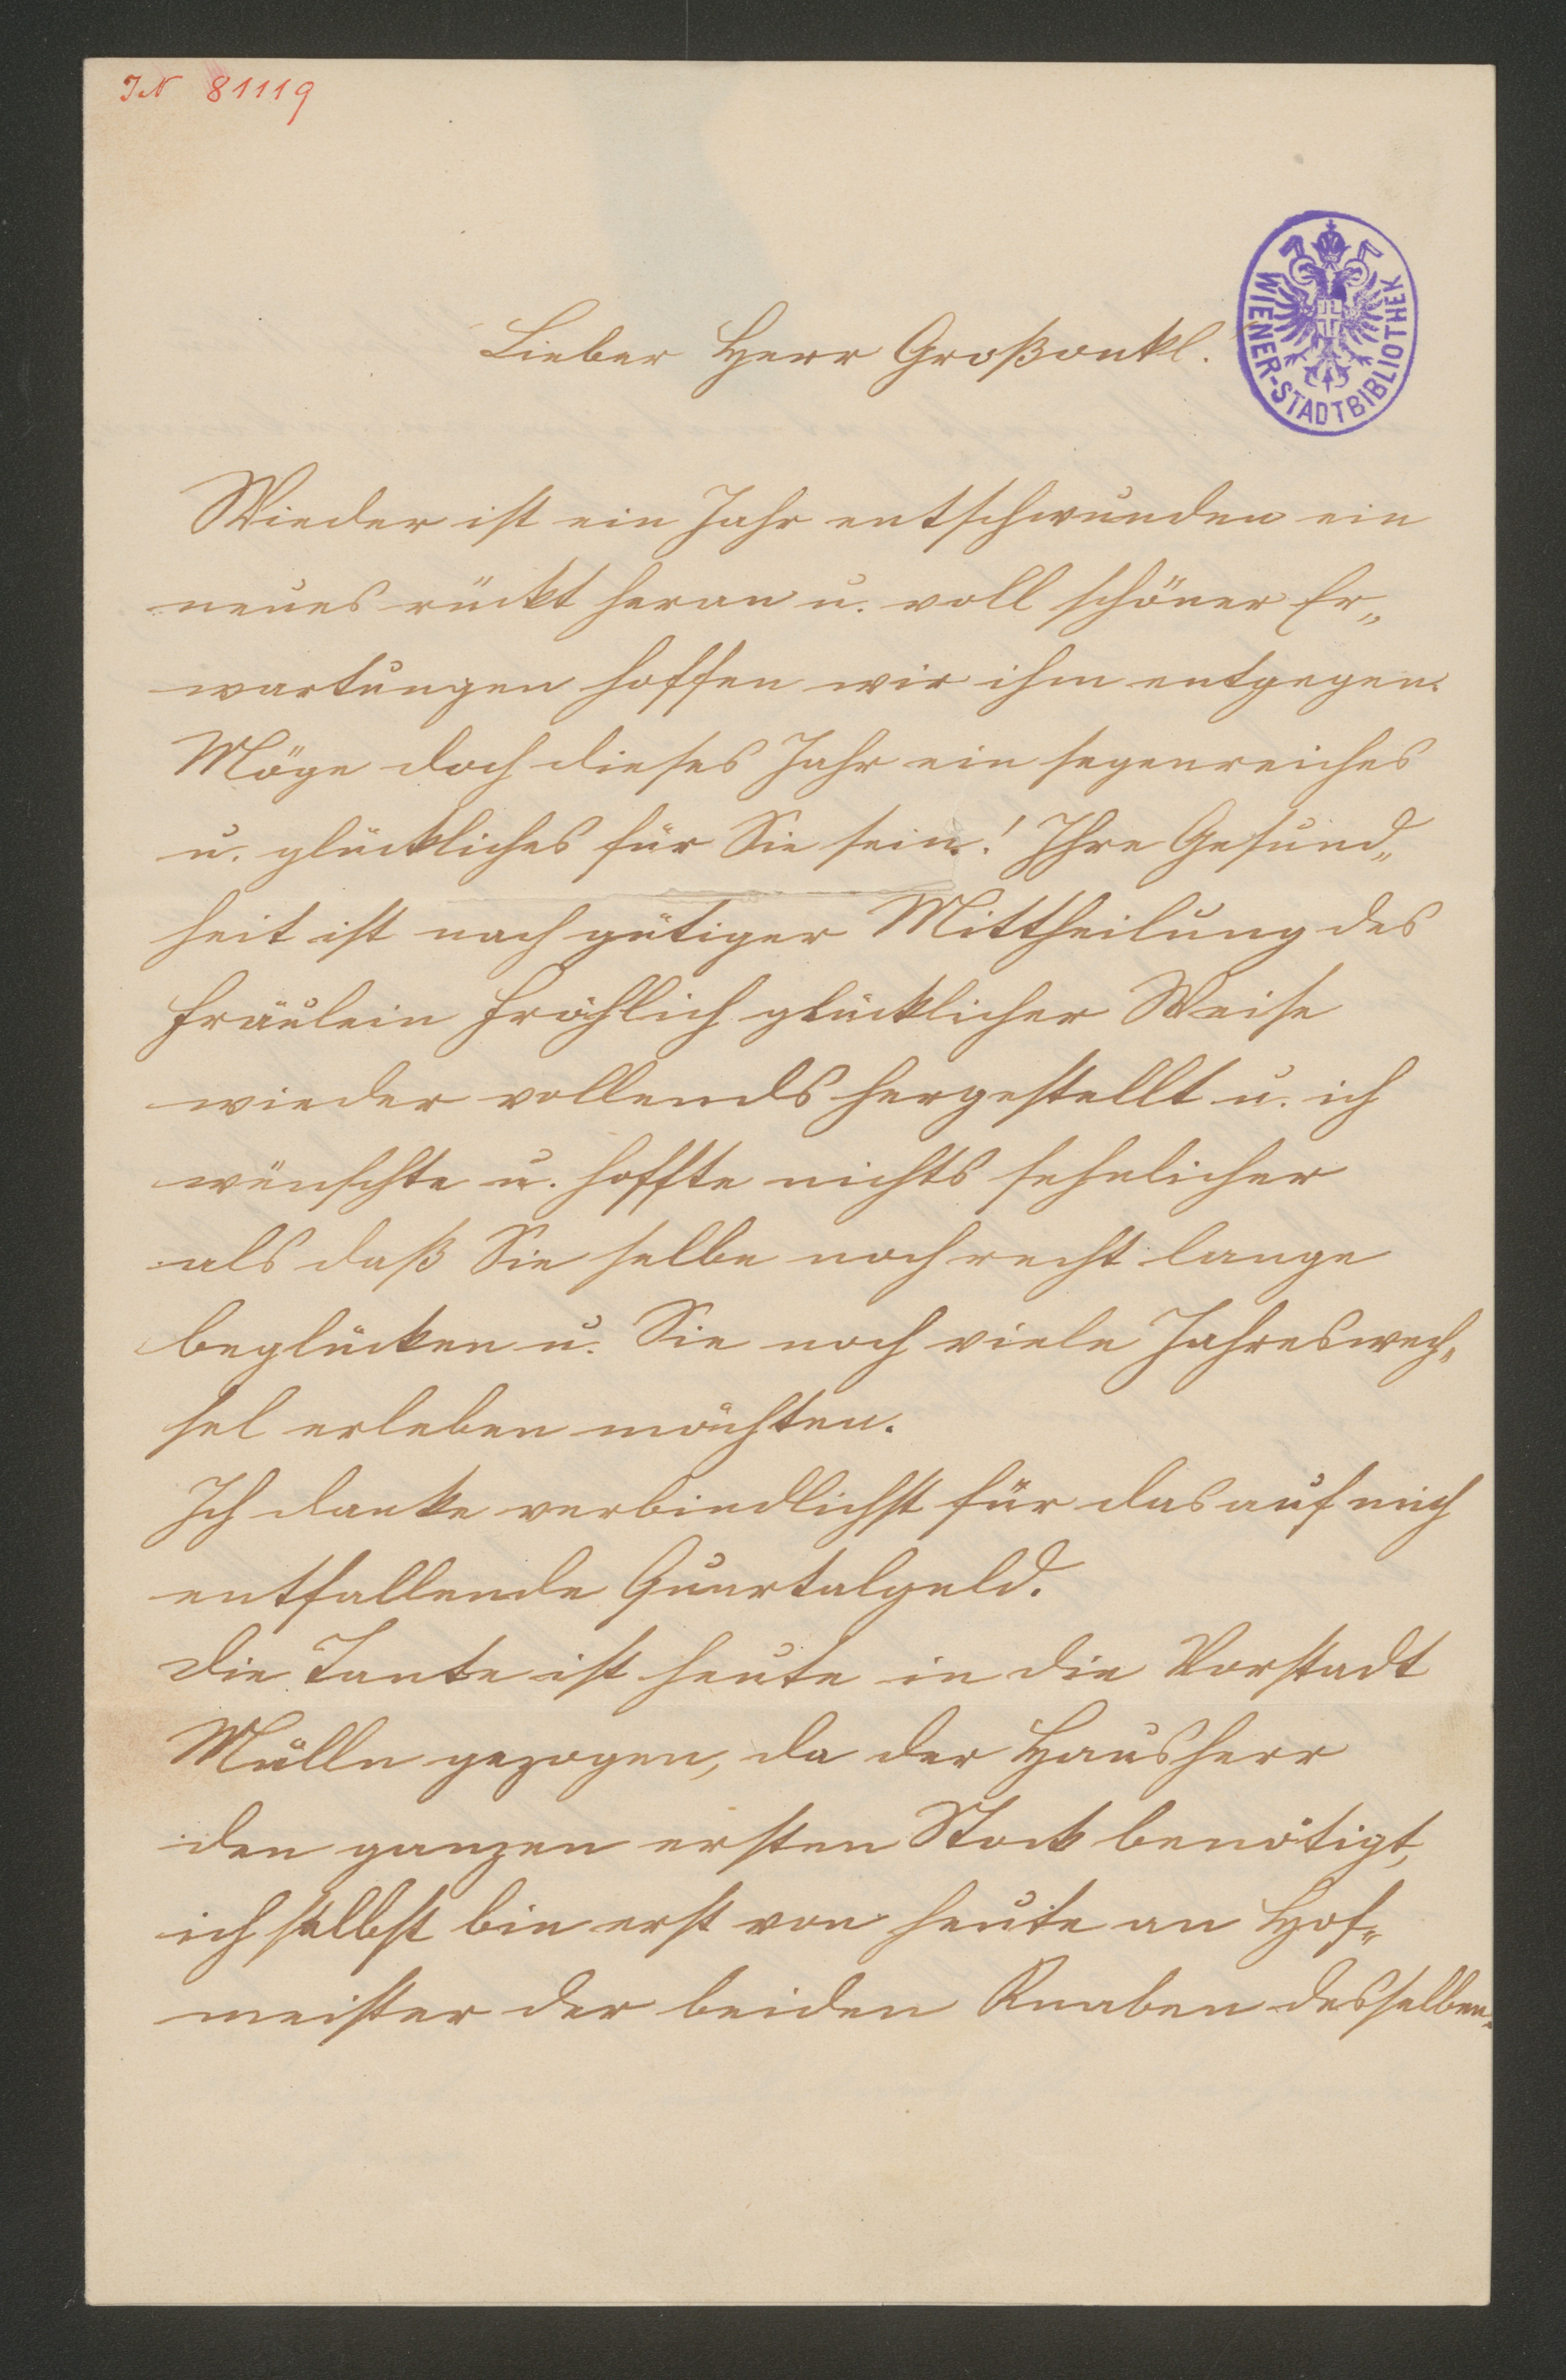 IN 81119
WIENER-STADTBIBLIOTHEK
Lieber Herr Großonkl.
Wieder ist ein Jahr entschwunden ein
neues rückt heran u. voll schöner Er„
wartungen hoffen wir ihm entgegen.
Möge doch dieses Jahr ein segenreiches
u. glückliches für Sie sein! Ihre Gesund„
heit ist nach gütiger Mittheilung des
Fräulein Fröhlich glücklicher Weise
wieder vollends hergestellt u. ich
wünschte u. hoffte nichts sehnlicher
als daß Sie selbe noch recht lange
beglücken u. Sie noch viele Jahreswech„
sel erleben möchten.
Ich danke verbindlichst für das auf mich
entfallende Quartalgeld.
Die Tante ist heute in die Vorstadt
Mülln gezogen, da der Hausherr
den ganzen ersten Stock benötigt,
ich selbst bin erst von heute an Hof„
meister der beiden Knaben desselben.